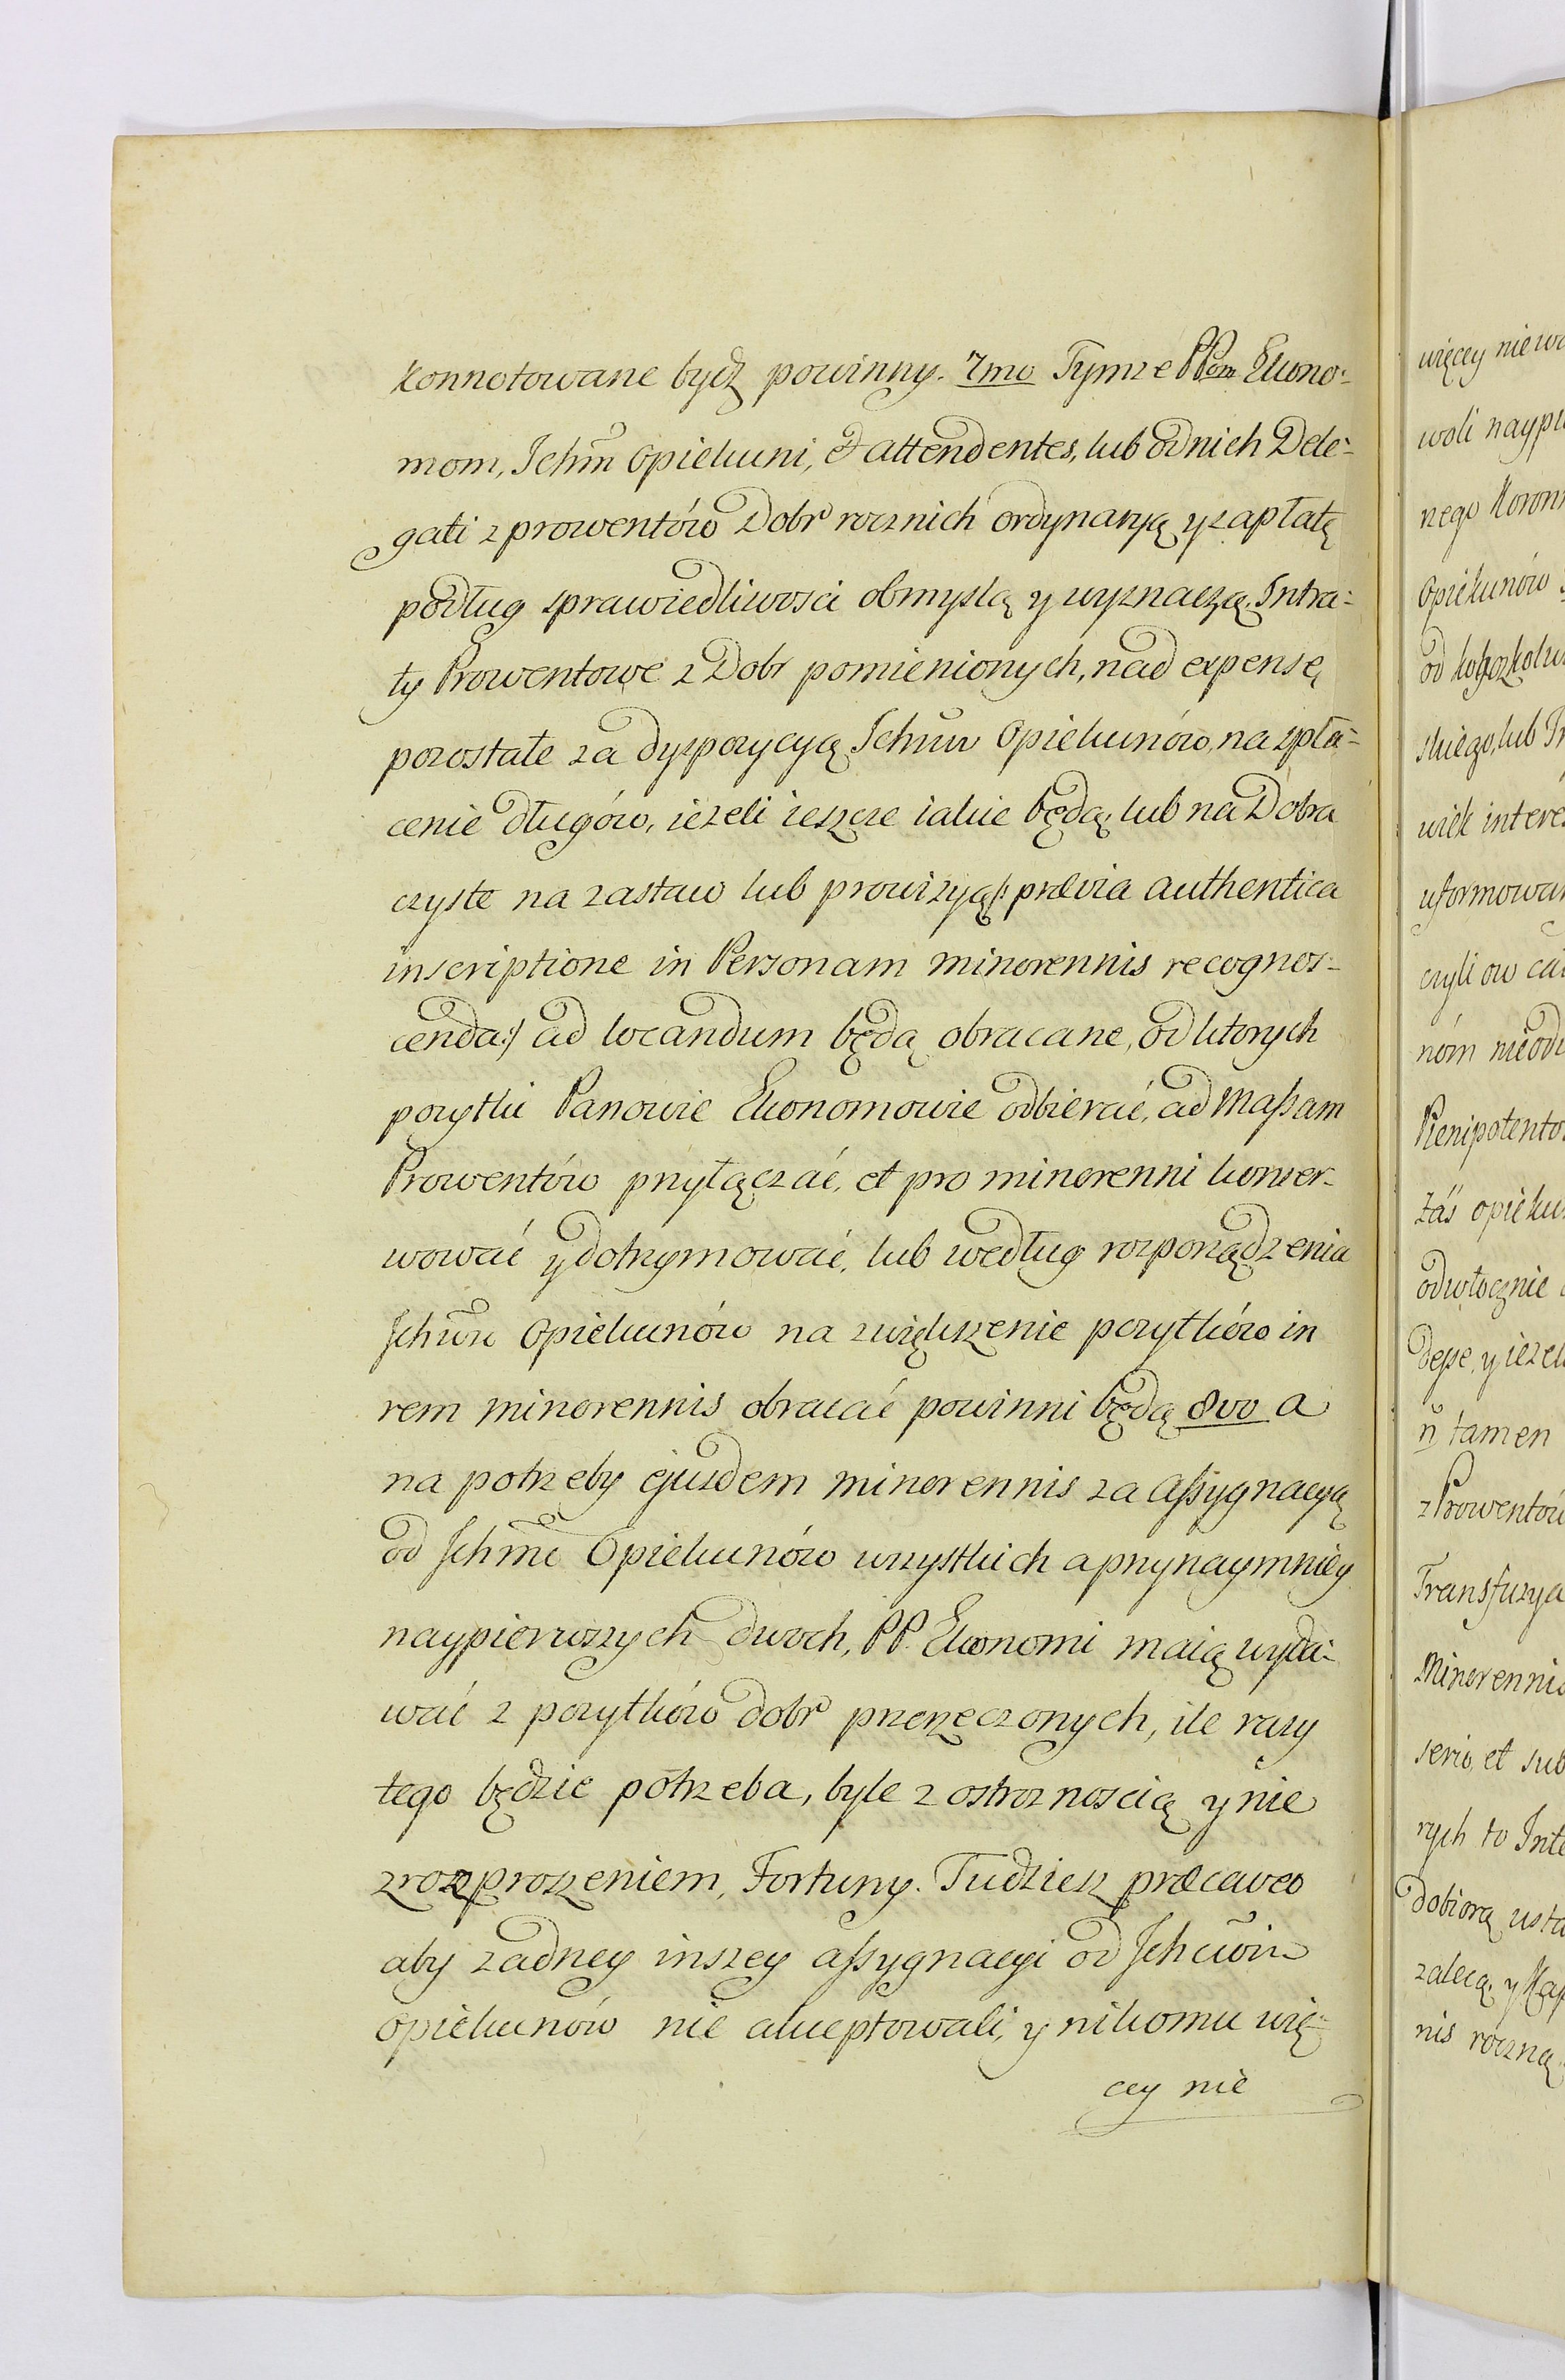 konnotowane bydź powinny. 7mo Tymże PPom Ekono:
mom, Ichm̃ Opiekuni, et attendentes, lub od nich Dele:
gati z prowentów Dobr rocznich ordynaryą y zapłatę
podług sprawiedliwosci obmyslą y wyznaczą. Intra:
ty Prowentowe z Dobr pomienionych, nad expensę
pozostałe za dyspozycyą Ichmw Opiekunów, na zpła:
cenie długów, ieżeli ieszcze iakie będą, lub na Dobra
czyste na zastaw lub prowizyą /: prævia authentica
inscriptione in Personam minorennis recognos:
cenda :/ ad locandum będą obracane, od ktorych
pożytki Panowie Ekonomowie odbierać, ad Massam
Prowentów przyłączać, et pro minorenni konser:
wować y dotrzymować, lub według rozporządzenia
Ichmw Opiekunów na zwiększenie pożytków in
rem minorennis obracać powinni będą 8vo a
na potrzeby ejusdem minorennis za assygnacyą
od Ichm̃ Opiekunów wszystkich a przynaymniey
naypierwszych dwoch, PP. Ekonomi maią wyda:
wać z pożytków dobr przerzeczonych, ile razy
tego będzie potrzeba, byle z ostrożnoscią y nie
z rozproszeniem Fortuny. Tudziesz præcaveo
aby żadney inszey assygnacyi od Ichmw
Opiekunów nie akceptowali, y nikomu wię:
cey nie
więcey
woli
nego
Opiekunów
od
skiego, lub
wiek
czyli ow
nóm
zaś
odwłocznie
ñ tamen
z Prowentów
Transfuzya
Minorennis
serio, et sub
rych to
dobiorą
zalecą, y
nis roczną